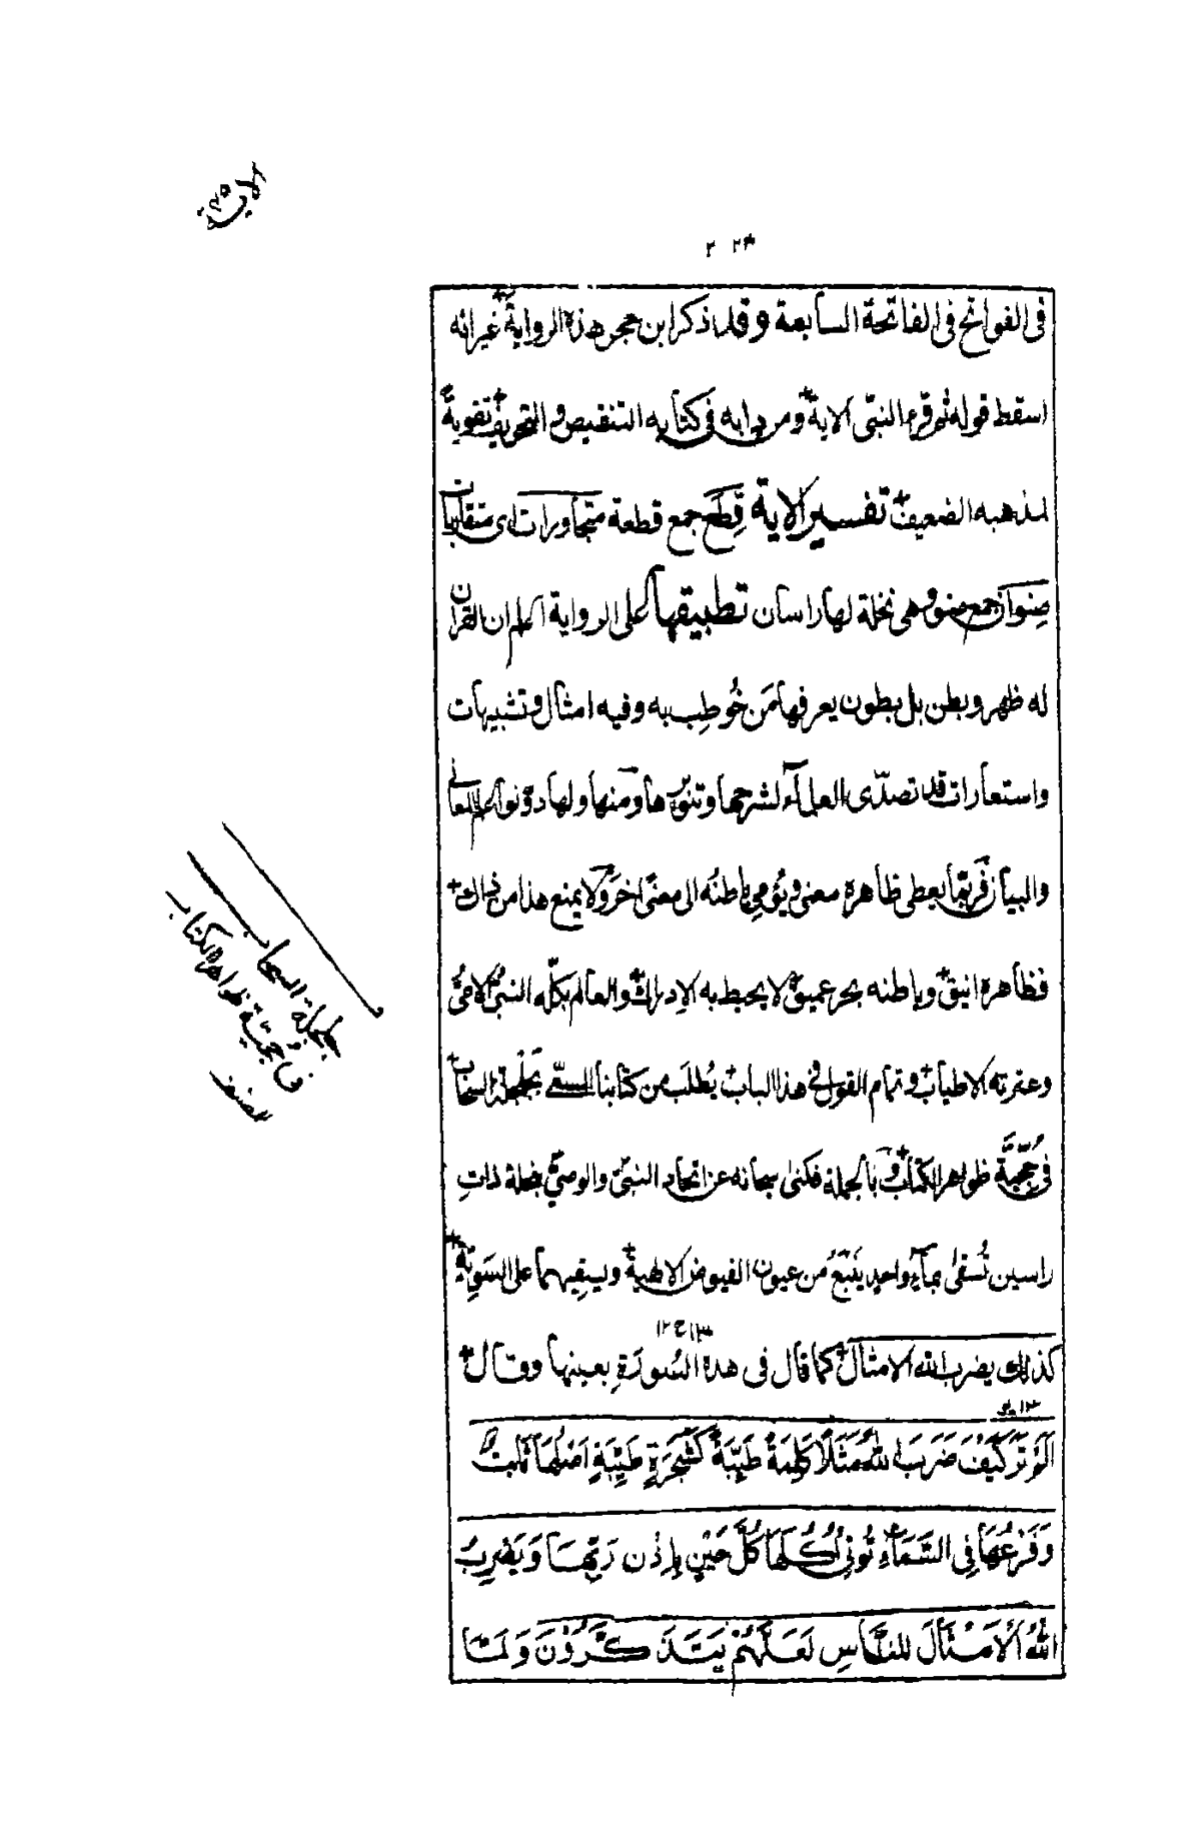 الاية
٢٢٣
فى الفواتح فى الفاتحة السابعة وقد ذكر ابن حجر هذه الرواية غير انه
اسقط قوله ثم قرء النبىّ الاية ومن دابه فى كتابه التنقيص والتحريف تقويةً
لمذهبه الضعيف تفسير الاية قِطَعٌ جمع قطعة متجاورات اى متقاربات
صِنوانٌ جمع صنو وهى نخلة لها راسان تطبيقها على الرواية اعلم ان القران
له ظهر وبطن بل بطون يعرفها مَن خُوطِب به وفيه امثال وتشبيهات
واستعارات قد تصدّى العلمآء لشرحها وتنويرها ومنها ولها دوّنوا علم المعانى
والبيان فربّما يعطى ظاهره معنى ويُؤمى باطنُه الى معنًى اخرَ ولا يمنع هذا من ذاك
فظاهره انيق وباطنه بحر عميق لا يحيط به الإدراك والعالم بكلّه النبىُّ الامىُّ
وعترته الاطياب وتمام القول فى هذا الباب يُطلَب من كتابنا المسمّى بجلجلة السحاب
فى حُجّيَّة ظواهر الكتاب وبالجملة فكنى سبحانه عن اتحاد النبىّ والوصىّ بنخلة ذاتِ
راسين تُسقى بمآءٍ واحدٍ يَنبَعُ من عيون الفيوض الالهية ويسقيهما على السَوِيَّةِ
١٣ ج ١٢
كذلك يضرب الله الامثال كما قال فى هذه السُورَةِ بعينها وقال
١٣
اَلَمْ تَرَ كَيْفَ ضَرَبَ اللهُ مَثَلًا كَلِمَةً طَيِّبَةً كَشَجَرَةٍ طَيِّبَةٍ اَصْلُهَا ثَابِتٌ
وَفَرْعُهَا فِى السَّمَآءِ تُؤتِى اُكُلَهَا كُلَّ حِيْنٍ بِاِذْنِ رَبِّهَا وَيَضْرِبُ
اللهُ الْاَمْثَالَ لِلنَّاسِ لَعَلَّهُمْ يَتَذَكَّرُوْنَ وَلَمّا
جلجلة السحاب
فى حُجّيّة ظواهر الكتاب